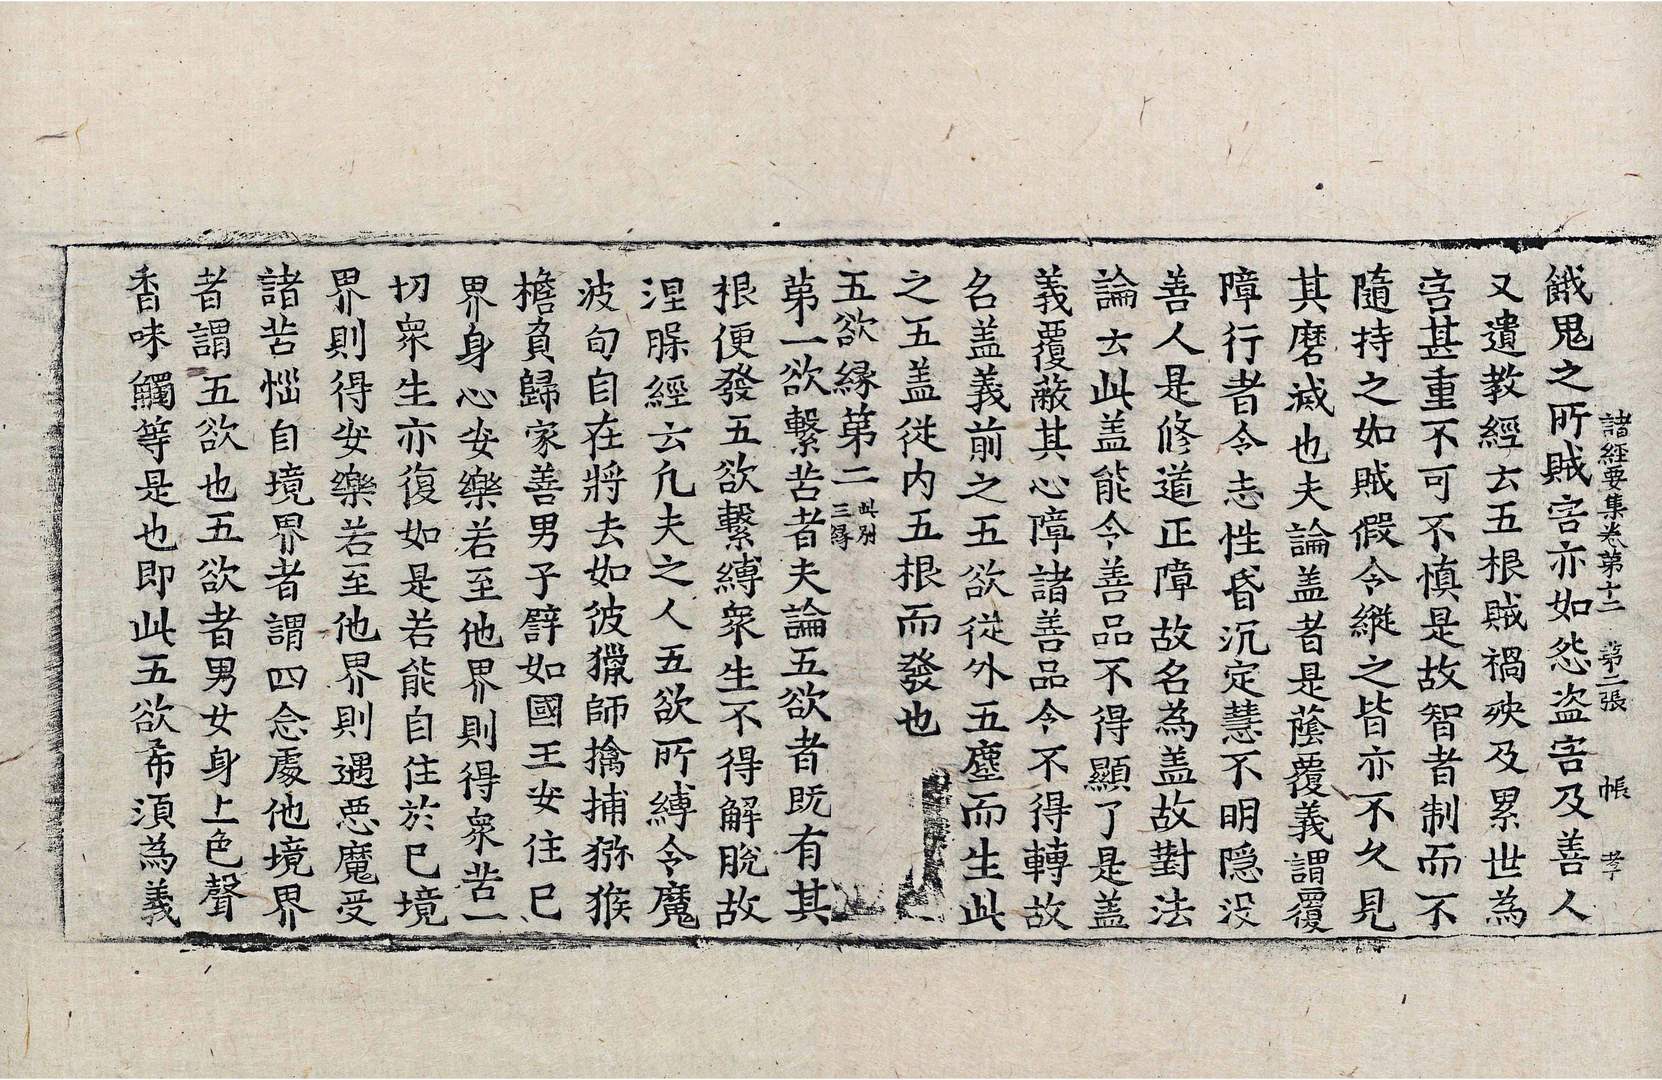 諸經要集卷第十二　第二張　帳　孝
餓鬼之所賊害亦如怨盗害及善人
又遺教經云五根賊禍殃及累世為
害甚重不可不慎是故智者制而不
隨持之如賊假令縱之皆亦不久見
其磨滅也夫論盖者是蔭覆義謂覆
障行者令志性昏沉定慧不明隠没
善人是修道正障故名為盖故對法
論云此盖能令善品不得顯了是盖
義覆蔽其心障諸善品令不得轉故
名盖義前之五欲從外五塵而生此
之五盖從内五根而發也
五欲縁第二 此別三縁
第一欲繫苦者夫論五欲者既有其
根便發五欲繫縛衆生不得解脫故
涅槃經云凡夫之人五欲所縛令魔
波旬自在將去如彼獵師擒捕猕猴
檐負歸家善男子譬如國王安住己
界身心安樂若至他界則得衆苦一
切衆生亦復如是若能自住於己境
界則得安樂若至他界則遇惡魔受
諸苦惱自境界者謂四念處他境界
者謂五欲也五欲者男女身上色聲
香味觸等是也即此五欲希湏為義